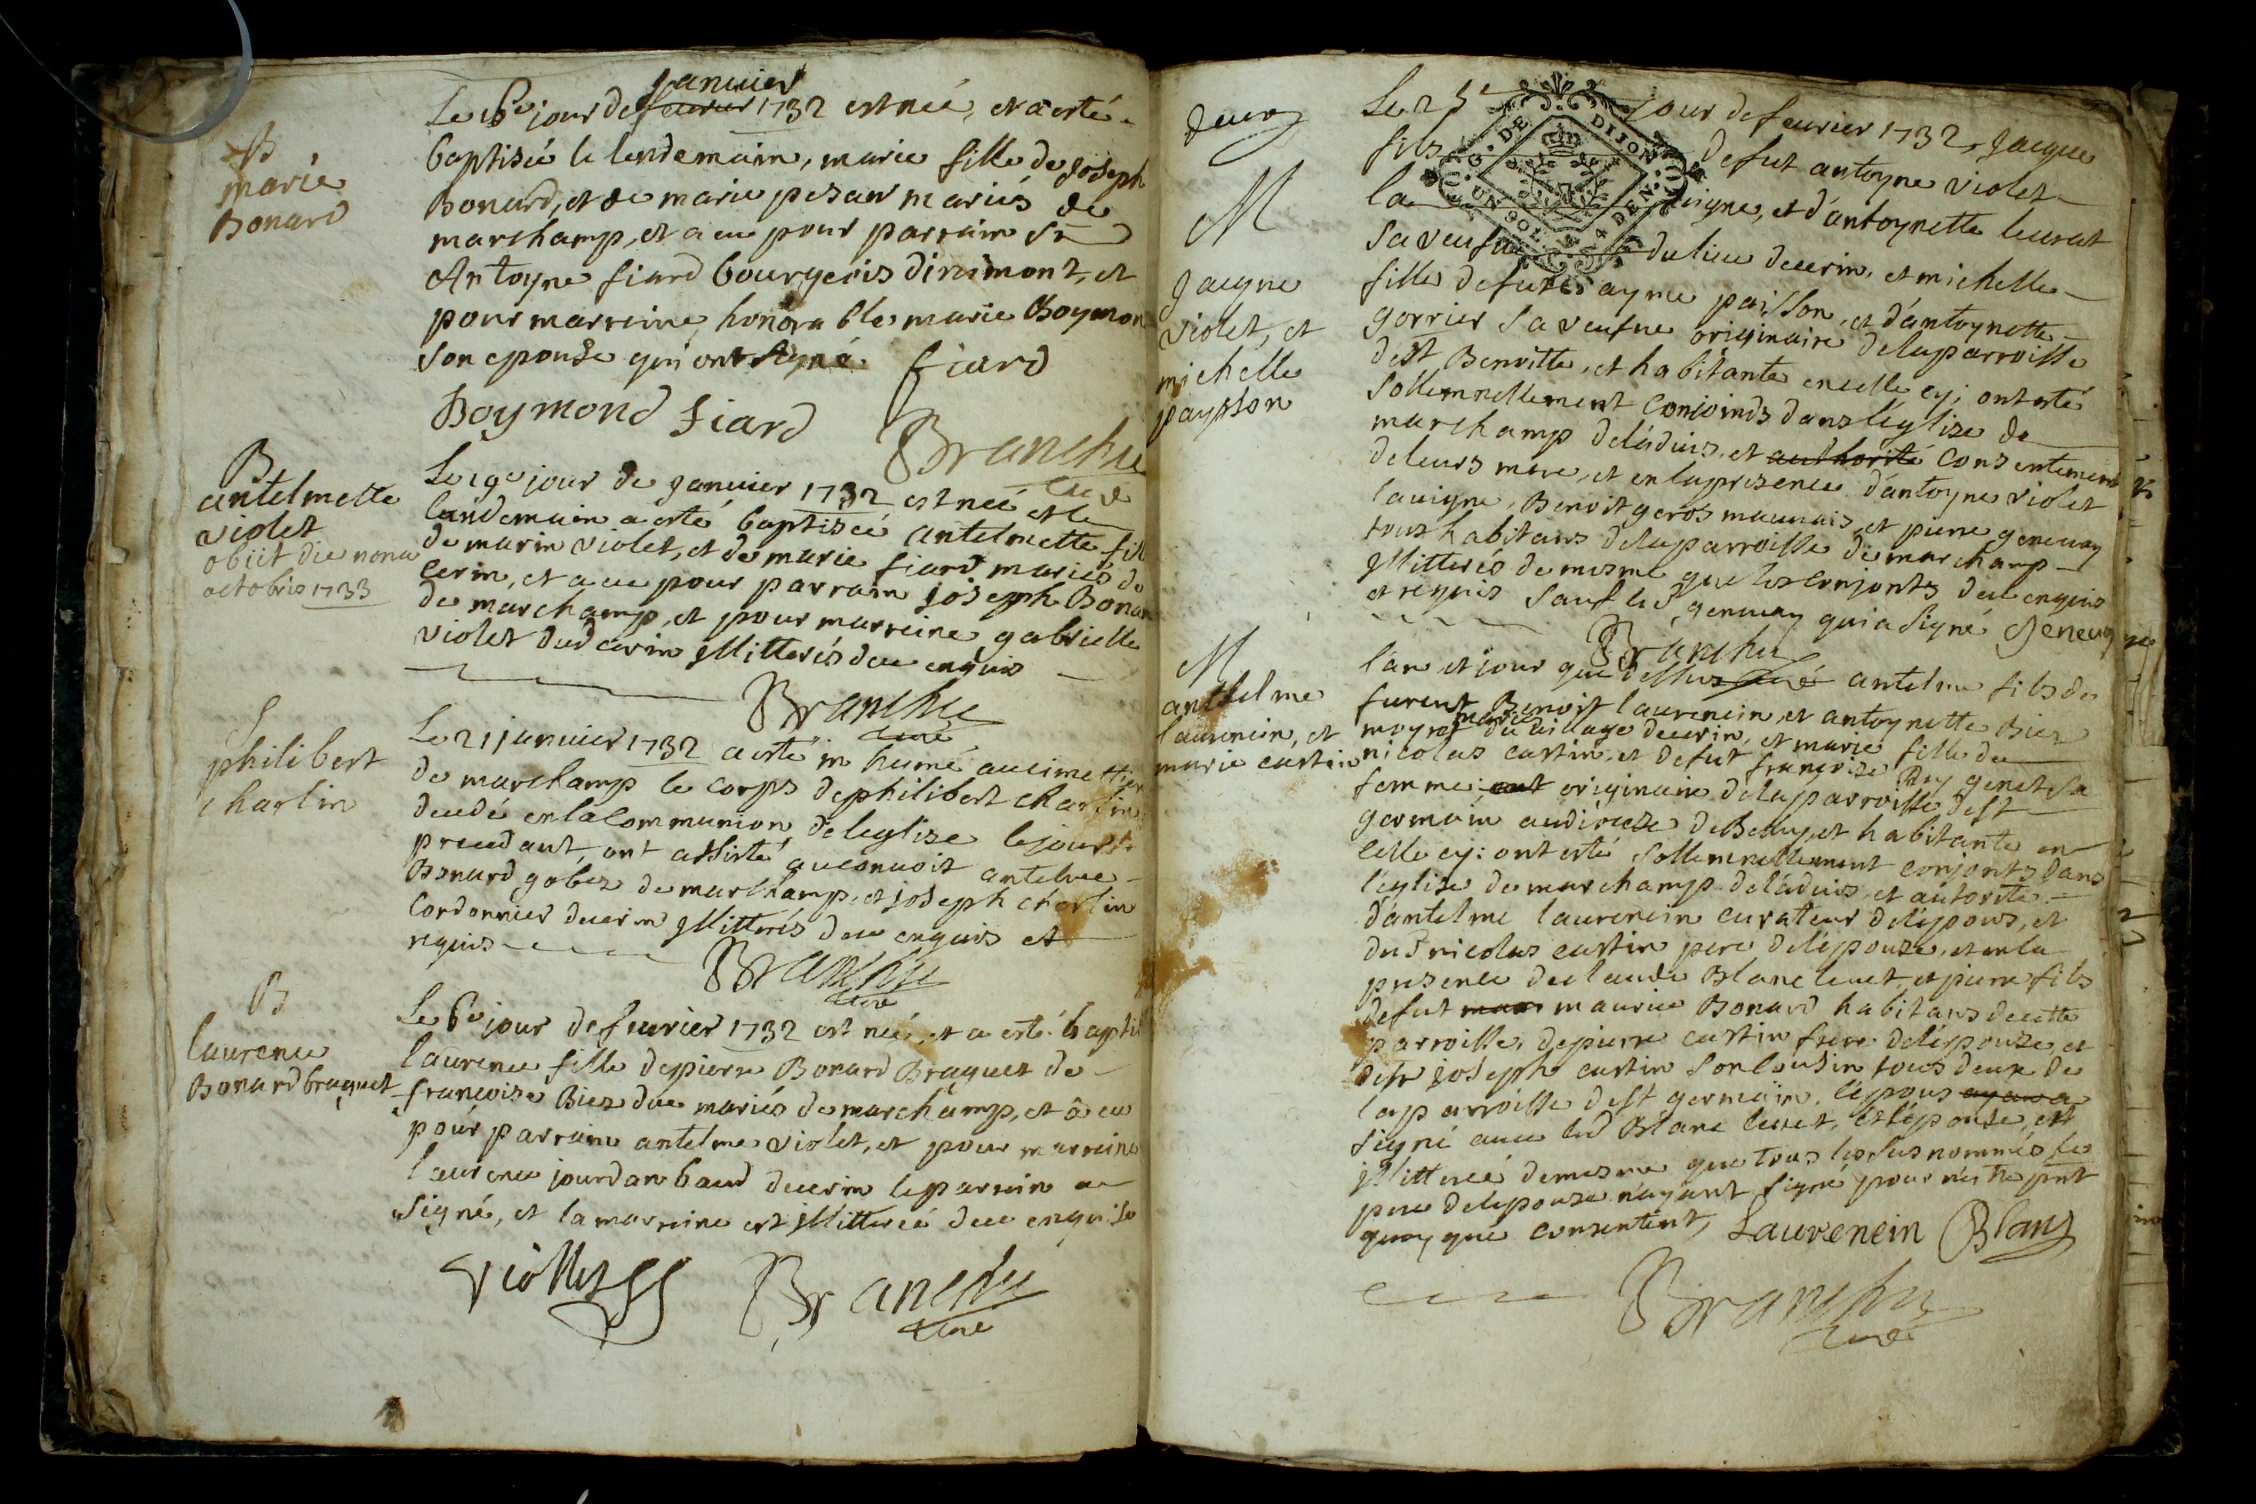 B
marie
Bonard
janvier
Le 16e jour de feurier 1732 est née, et a esté
baptisée le lendemain, marie fille de joseph
Bonard, et de marie pesant mariés de
marchamp, et a eu pour parrain Sr
Antoyne fiard bourgeois dinimont, et
pour marreine honorable marie Boymon
son epouse qui ont signé fiard
Boymond fiard
Branchu
curé
B
antelmette
violet
obiit die nona
octobris 1733
Le 19e jour de janvier 1732 est née et le
lendemain a esté baptisée antelmette fill
de marin violet, et de marie fiard mariés de
cerin, et a eu pour parrain joseph Bonar
de marchamp, et pour marreine gabrielle
violet dud cerin jllitterés deu enquis
Branchu
curé
S
philibert
charlin
Le 21 janvier 1732 a esté inhumé au cimettier
de marchamp le corps de philibert charlin
decedé en la communion de leglise le jour
precedant, ont assisté au convoit antelme
Bonard gobez de marchamp, et joseph charlin
cordonnier de cerin jllitterés deu enquis et
requis
Branchu
curé
B
laurence
Bonard braquet
Le 6e jour de feurier 1732 est née, et a esté bapti
laurence fille de pierre Bonard Braquet de
françoise Biez due mariés de marchamp, et a eu
pour parrain antelme violet, et pour marreine
laurence jourdan baud de cerin le parrein a
signé, et la marreine est jllitterée deu enquise
viollet
Branchu
curé
M
jacque
violet, et
michelle
paysson
Le 25e jour de feurier 1732, jacque
fils de fut antoyne violet
la vigne, et d'antoynette leurat
sa veufue du lieu de cerin, et michelle
fille de fut ayme paisson, et d'antoynette
gorrier sa veufue originaire de la parroisse
de st Benoitte, et habitante en celle cy; ont esté
sollemnellement conjoinds dans l'église de
marchamp de l'aduis, et authorité consentement
de leurs mere, et en la presence d'antoyne violet
lavigne, Benoit geros maunais, et pierre genevay
tous habitans de la parroisse de marchamp
jllitterés de mesme que les conjonts deu enquis
et requis sauf led genevay qui a signé Genevay
Branchu
curé
M
anthelme
laurencin, et
marie custin
l'an et jour que dessus antelme fils de
furent Benoit laurencin, et antoynette Biez
moyret mariés du village de cerin, et marie fille de
nicolas custin, et de fut françoise Rey genet sa
femme: ont originaire de la parroisse de st
germain audiocese de Belley, et habitante en
celle cy: ont esté sollemnellement conjonts dans
l'église de marchamp de l'aduis, et autorité
d'antelme laurencin curateur de l'epous, et
dud nicolas custin pere de l'epouze, et en la
presence de claude Blanc levet, et pierre fils
de fut maurice Bonard habitans de cette
parroisse, de pierre custin frere de l'epouze et
de joseph custin son cousin tous deux de
la parroisse de st germain, l'epous ayant
signé auec led Blanc levet, et l'epouse, est
jllitterée de mesme que tous les susnommés le
pere de l'epouze n'ayant signé pour n'estre pnt
quoy que consentent, Laurencin Blanc
Branchu
curé
G. DE DIJON
UN SOL 4 DEN.